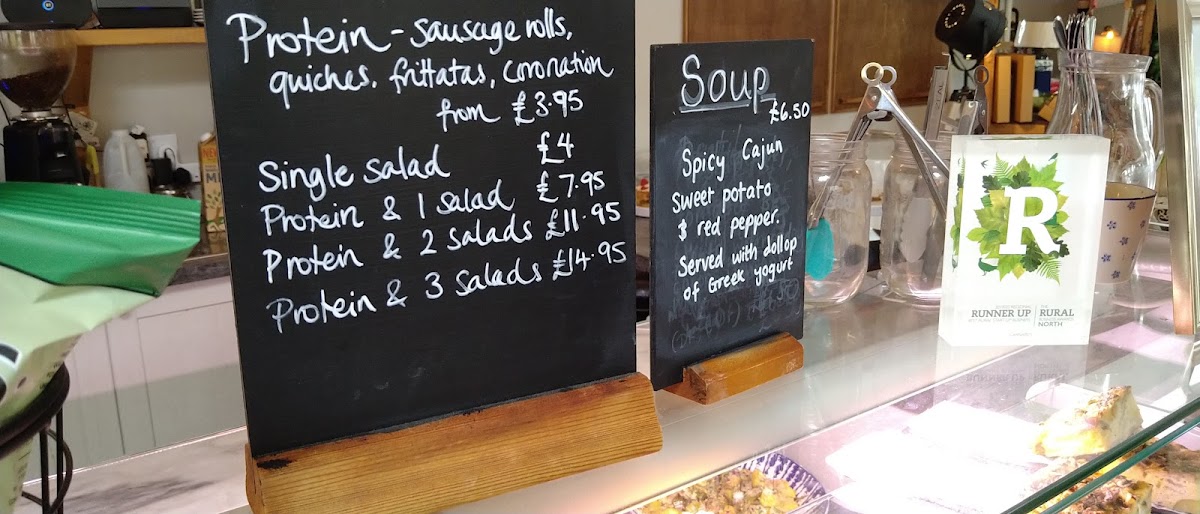 Protein - sausage rolls,
quiches, frittatas, coronation
from £3.95
Single salad £4
Protein & 1 salad £7.95
Protein & 2 salads £11.95
Protein & 3 salads £14.95
Soup
£6.50
Spicy Cajun
sweet potato
& red pepper.
Served with dollop
of Greek yogurt
R
RUNNER UP
THE
RURAL
NORTH